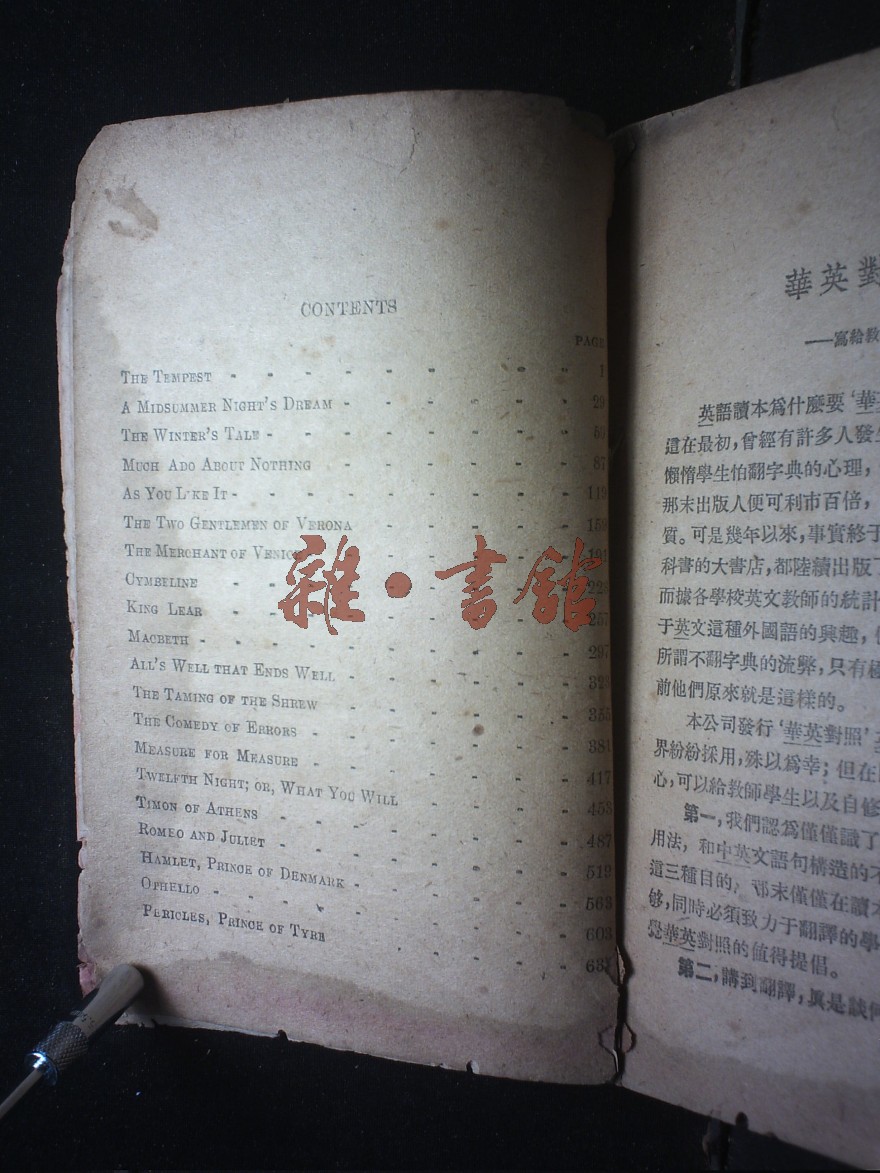 CONTENTS
PAGE
THE TEMPEST - - - - - - - - 1
A MIDSUMMER NIGHT'S DREAM - - - - - - 29
THE WINTER'S TALE - - - - - - - -
MUCH ADO ABOUT NOTHING - - - - - - 87
AS YOU LIKE IT - - - - - - - - 119
THE TWO GENTLEMEN OF VERONA - - - - - 159
THE MERCHANT OF VENICE - - - - - - 191
CYMBELINE - - - - - - - -
KING LEAR - - - - - - - - 257
MACBETH - - - - - - - - 297
ALL'S WELL THAT ENDS WELL - - - - - - 323
THE TAMING OF THE SHREW - - - - - - 355
THE COMEDY OF ERRORS - - - - - - - 381
MEASURE FOR MEASURE - - - - - - - 417
TWELFTH NIGHT; OR, WHAT YOU WILL - - - - 453
TIMON OF ATHENS - - - - - - - - 487
ROMEO AND JULIET - - - - - - - - 519
HAMLET, PRINCE OF DENMARK - - - - - - 563
OPHELLO - - - - - - - - 603
PERICLES, PRINCE OF TYRE - - - - -
雜·書館
華英對
——寫給教
英語讀本為什麼要‘華英
這在最初，曾經有許多人發生
懶惰學生怕翻字典的心理，
那末出版人便可利市百倍，
質。可是幾年以來，事實終于
科書的大書店，都陸續出版了
而據各學校英文教師的統計
于英文這種外國語的興趣，
所謂不翻字典的流弊，只有極
前他們原來就是這樣的。
本公司發行‘華英對照’
界紛紛採用，殊以為幸；但在
心，可以給教師學生以及自修
第一，我們認為僅僅識了
用法，和中英文語句構造的不
這三種目的，那末僅僅在讀本
够，同時必須致力于翻譯的學
覺華英對照的值得提倡。
第二，講到翻譯，眞是談何